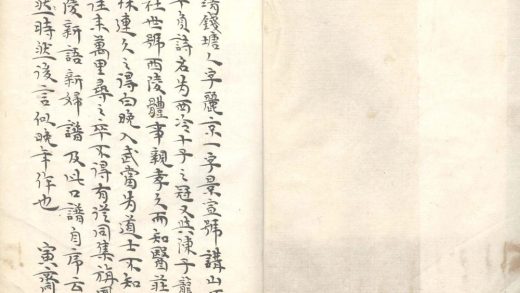 錢塘人字麗京一字景宣號講山
貞詩名為西冷十子之冠又與陳子龍
社世號西陵體事親孝久而知醫莊
株連久之得白晚入武當為道士不知
往來萬里尋之卒不得有從同集旃
陵新語新婦譜及此口譜自序云
然時然後言似晚年作也 寅齋